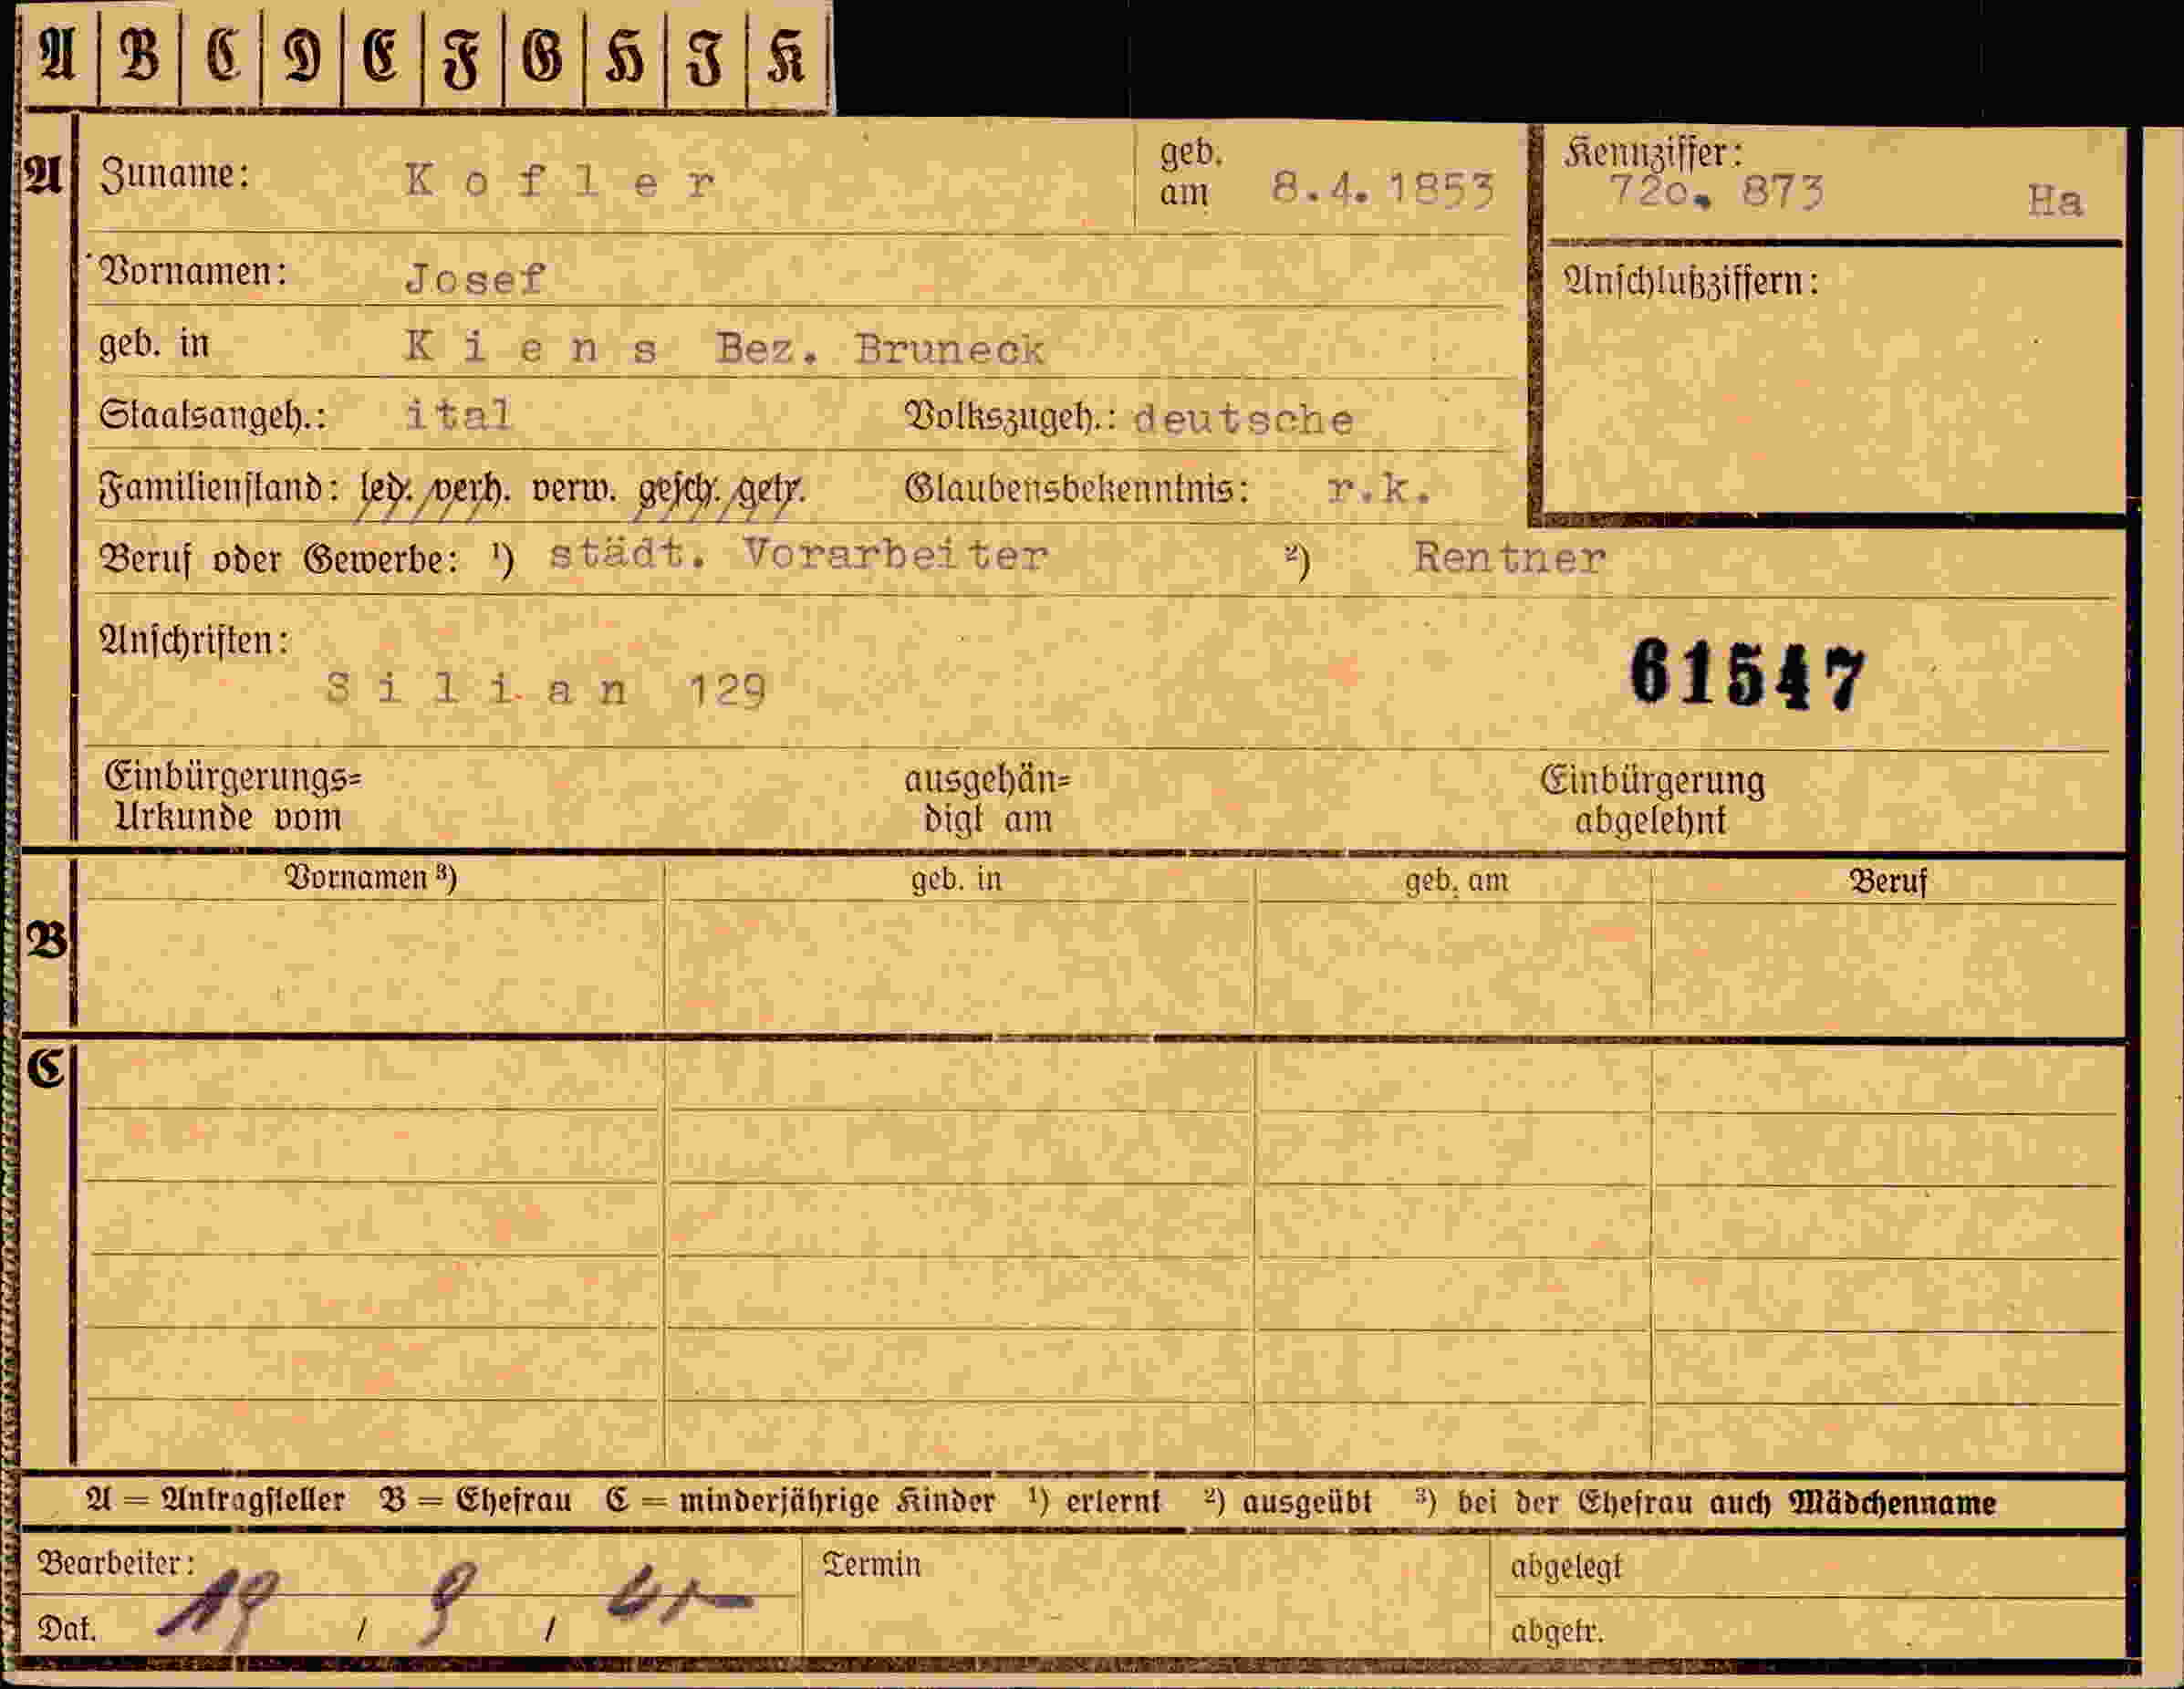 A B C D E F G H I K
A Zuname: Kofler geb. am 8.4.1853 Kennziffer: 720. 873 Ha
Vornamen: Josef Anschlußziffern:
geb. in Kiens Bez. Bruneck
Staatsangeh.: ital Volkszugeh.: deutsche
Familienstand: led. verh. verw. gesch. getr. Glaubensbekenntnis: r.k.
Beruf oder Gewerbe: ¹) städt. Vorarbeiter ²) Rentner
Anschriften:
61547
Silian 129
Einbürgerungs= ausgehän= Einbürgerung
Urkunde vom digt am abgelehnt
Vornamen ³) geb. in geb. am Beruf
B
C
A = Antragsteller B = Ehefrau C = minderjährige Kinder ¹) erlernt ²) ausgeübt ³) bei der Ehefrau auch Mädchenname
Bearbeiter: Termin abgelegt
Dat. 19 / 9 / abgetr.